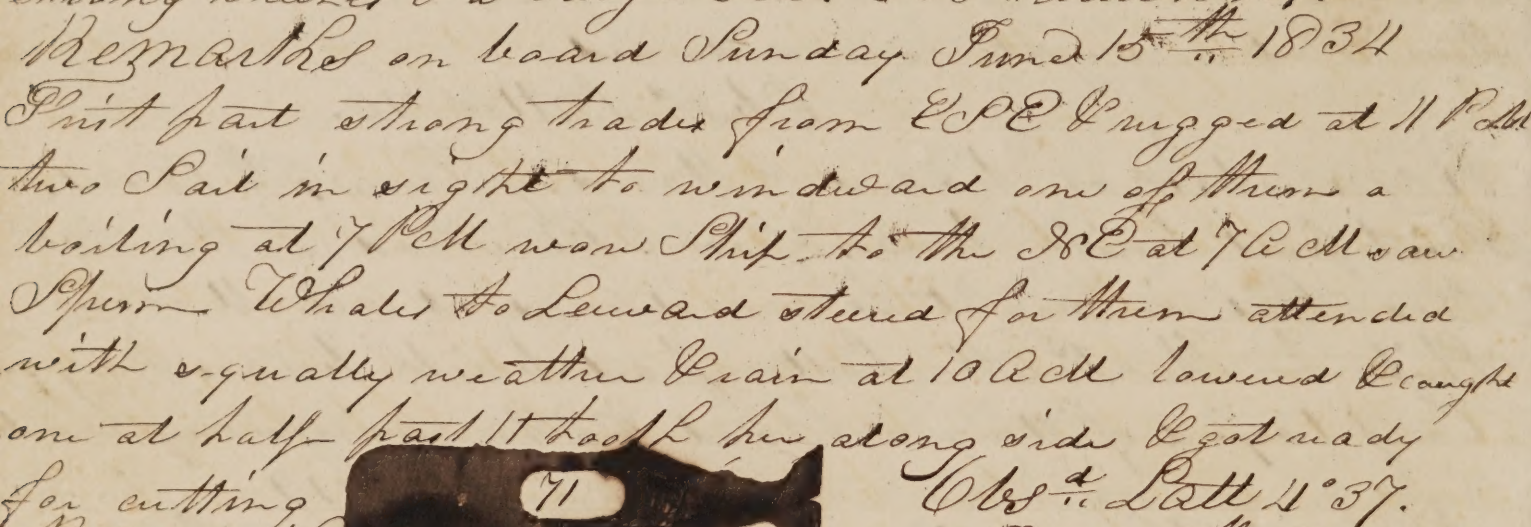 Remarks on board Sunday June 15th 1834
First part strong trades from ESE & rugged at 4 PM
two Sail in sight to windward one of them a
boiling at 7 PM wore Ship to the NE at 7 AM saw
Sperm Whales to Leeward steered for them attended
with squally weather & rain at 10 AM lowered & caught
one at half past 11 took her along side & got ready
for cutting 71 Obsd Latt 4°37.